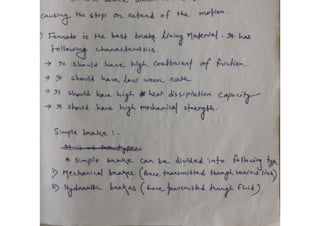 causing the stop on retand of the motion.
) Fennoto is the best brake lining Material. It has
following characteristics.
→ It should have high coefficient of friction.
→ It should have low wean rate
→ It should have high heat dissipiation capacity
→ It should have high mechanical strength.
Simple brake :-
* simple brake can be divided into following typ
i) Mechanical brakes (force transmitted though various link)
ii) Hydraulic brakes (force transmitted though fluid)